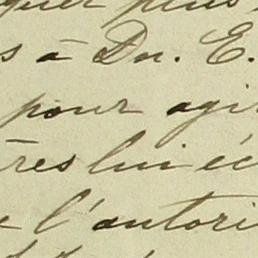 quer plus
s à Dn. E.
pour agir
res lui éc
e l'autori